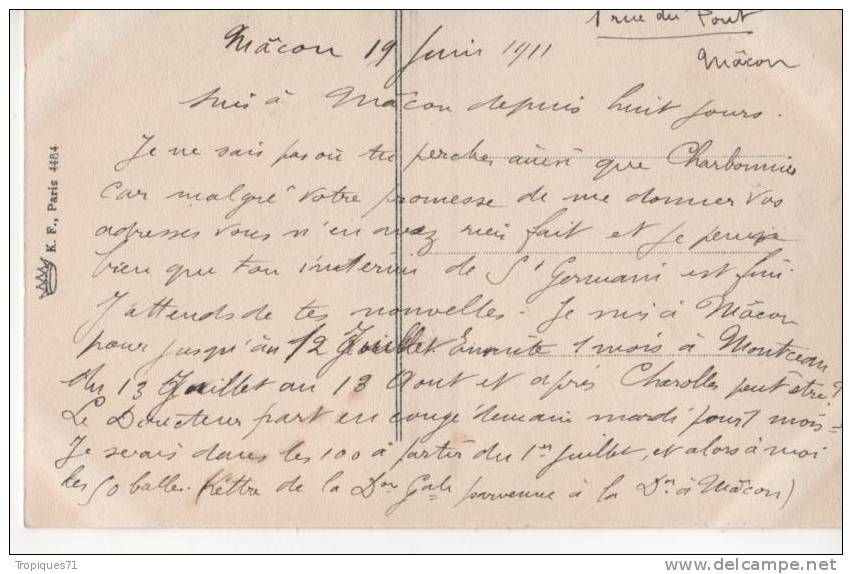 1 rue du Pont
Mâcon
Mâcon 19 Juin 1911
Suis à Mâcon depuis huit jours.
Je ne sais pas où tu perches ainsi que Charbonnier
car malgré votre promesse de me donner vos
adresses vous n'en avez rien fait et je pense
bien que ton intérim de St Germain est fini
J'attends de tes nouvelles. Je suis à Mâcon
pour jusqu'au 12 Juillet. Ensuite 1 mois à Montceau
du 13 Juillet au 13 Aout et après Charolles peut être ?
Le Directeur part en congé demain mardi pour 1 mois-
Je serais dans les 100 à partir du 1er Juillet, et alors à moi
les 50 balles. (lettre de la Don Gale parvenue à la Don à Mâcon)
K. F., Paris 4484
Tropiques71
www.delcampe.net